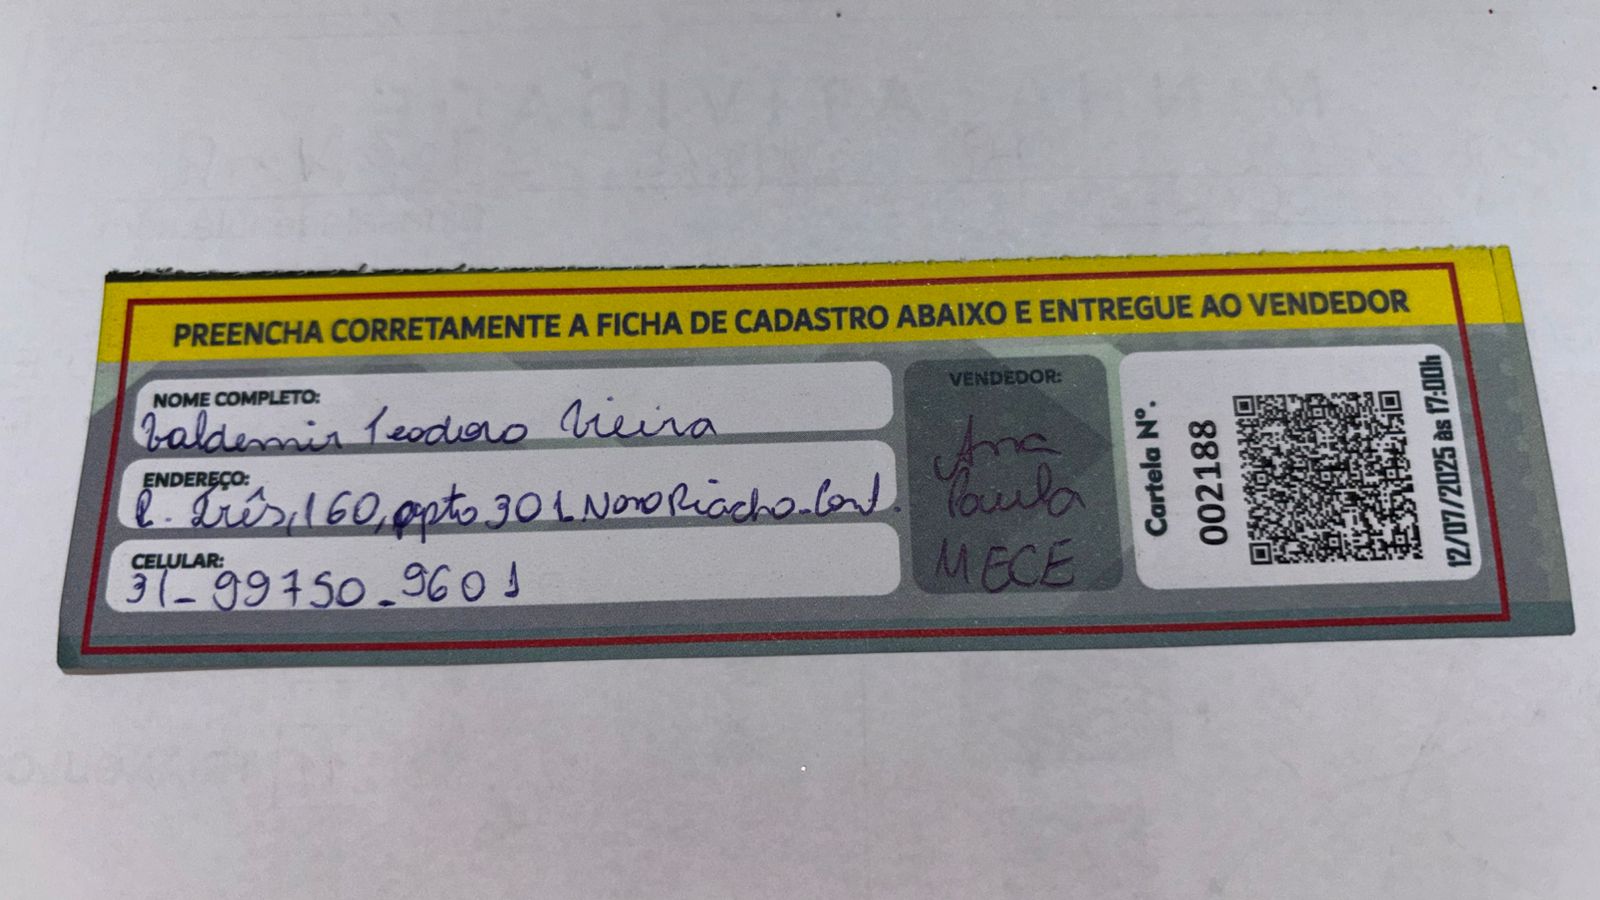 PREENCHA CORRETAMENTE A FICHA DE CADASTRO ABAIXO E ENTREGUE AO VENDEDOR
NOME COMPLETO:
Valdemir Teodoro Vieira
ENDEREÇO:
R. Três, 160, apto 301 Novo Riacho-Cont.
CELULAR:
31-99750-9601
VENDEDOR:
Ana
Paula
MECE
Cartela Nº.
002188
12/07/2025 às 17:00h